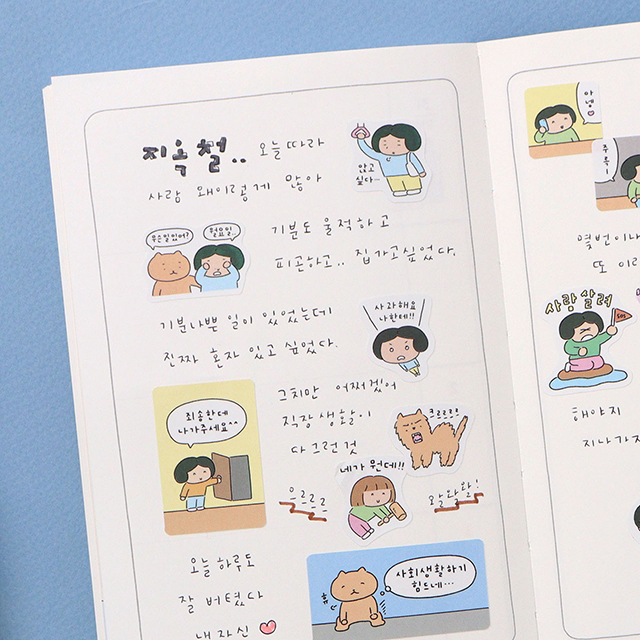 지옥철.. 오늘따라
사람 왜이렇게 많아
앉고
싶다~
무슨일있어?
월요일..
기분도 울적하고
피곤하고.. 집가고싶었다.
기분나쁜 일이 있었는데
진짜 혼자 있고 싶었다.
사과해요
나한테!!
죄송한데
나가주세요^^
그치만 어쩌겠어
직장생활이
다 그런 것
크르르르!
네가 뭔데!!
으르르르
왈와왈!
오늘 하루도
잘 버텼다
내자신
사회생활하기
힘드네...
휴
안녕
몇번이나
또 이리
사람 살려
SOS
해야지
지나가